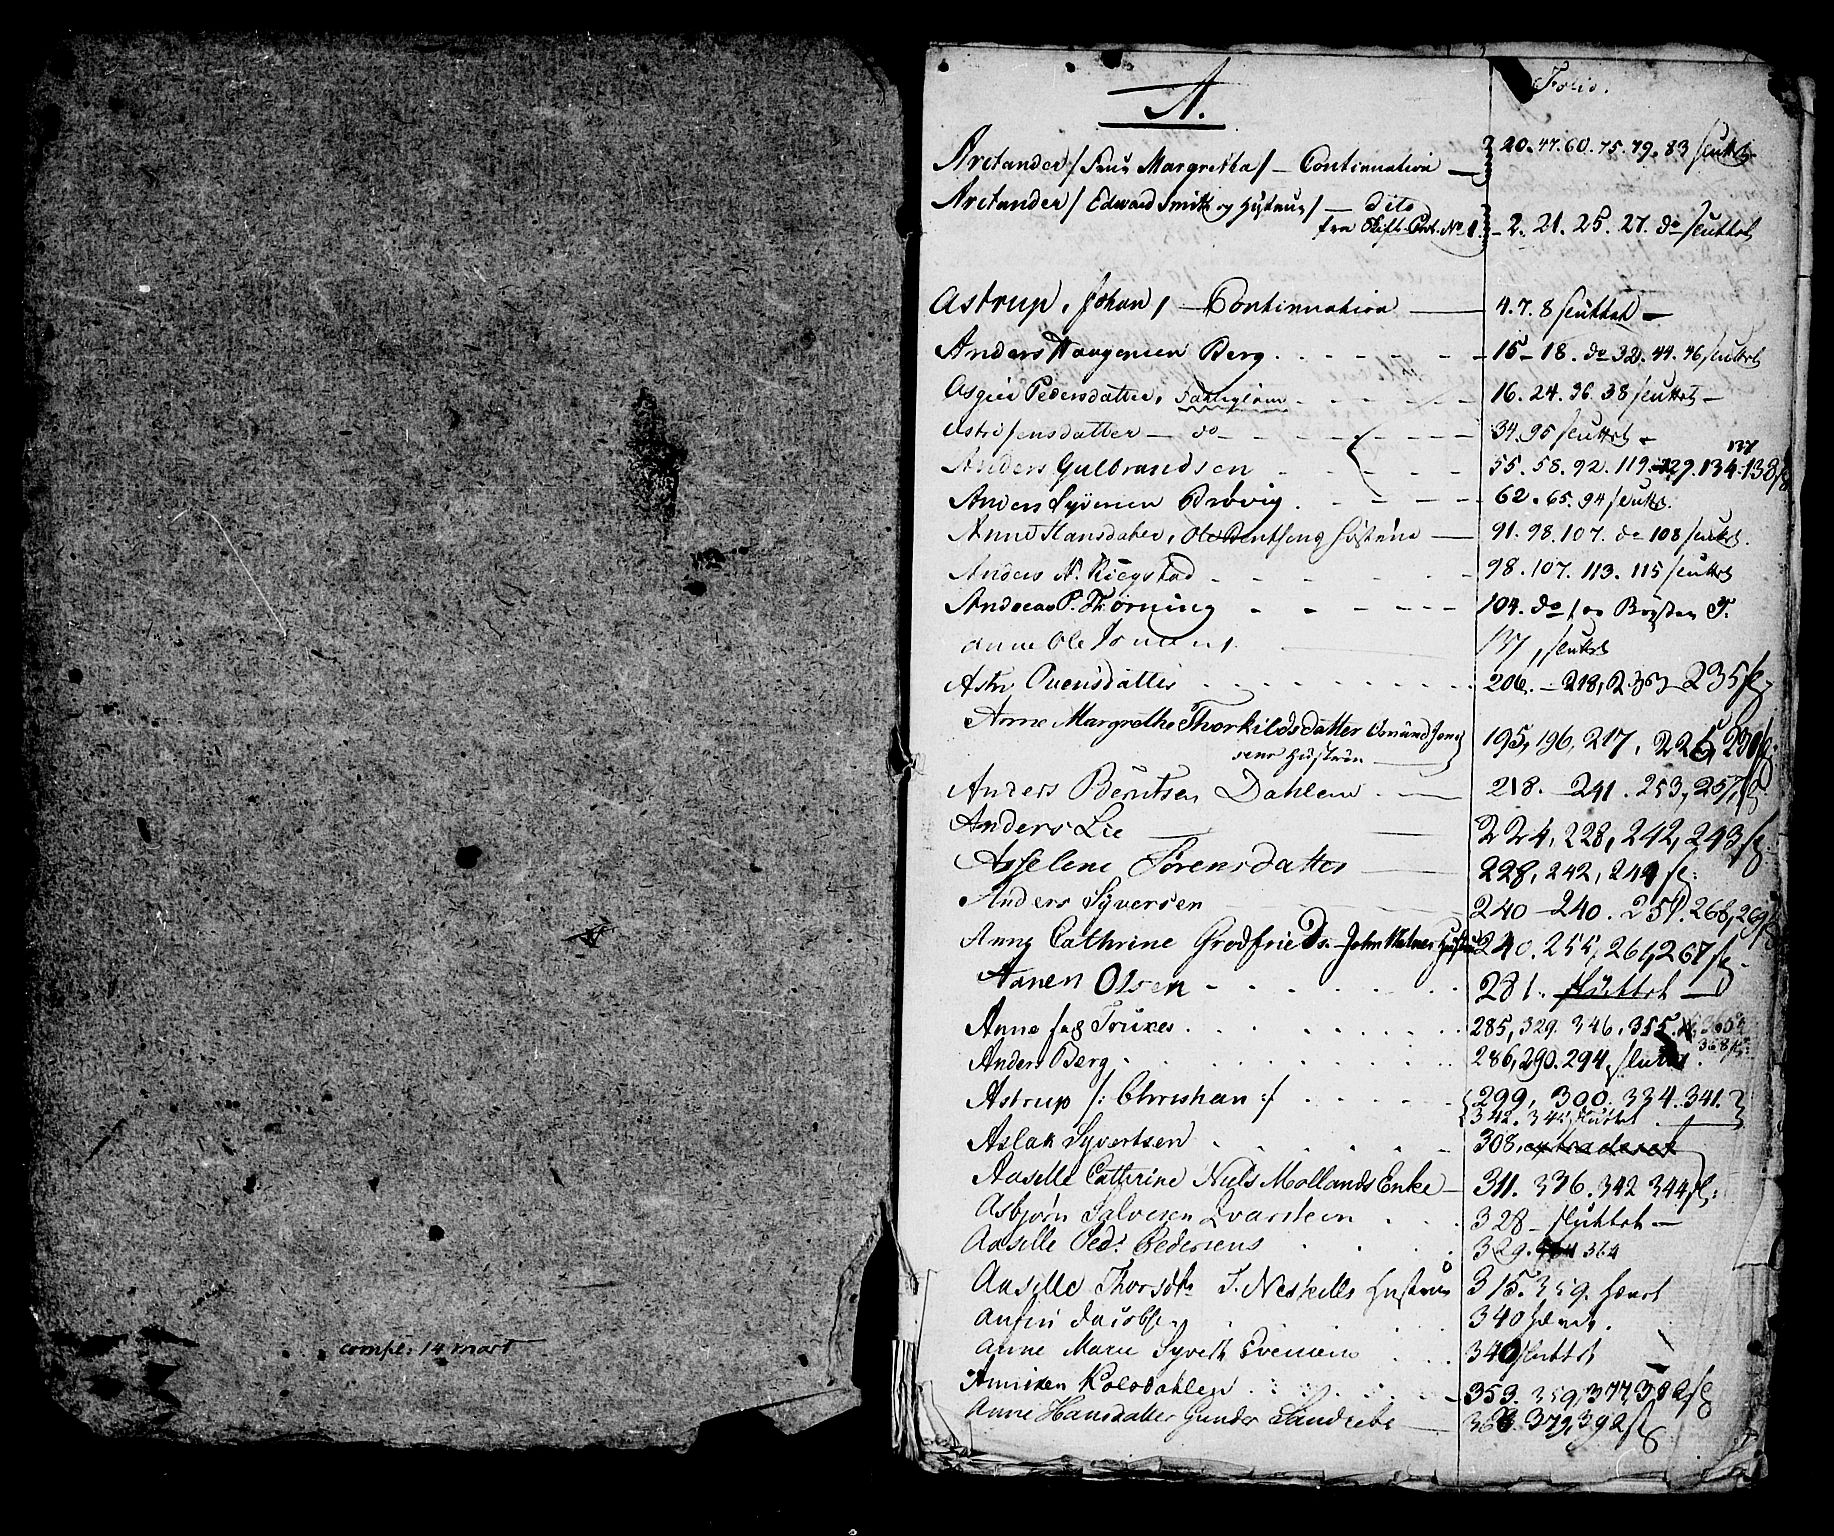 compl: 14 mart
A.
Folio.
Arctander /Frue Margretha/ — Continuation — 20. 47. 60. 75. 79. 83 sluttet
Arctander / Edward Smith og Hustrue / — dito
fra Skifte Prot. No 1. — 2. 21. 25. 27. do sluttet
Astrup, Johan, — Continuation — 4. 7. 8 sluttet —
Anders Berg. — 15 — 18. do 32. 44. 46 sluttet
Pedersdatter, — 16. 24. 36. 38 sluttet —
— do — 34. 95 sluttet —
Anders Gulbrandsen — 55. 58. 92. 119. 129. 134. 137 138
Anders Syversen Brøvig. — 62. 65. 94 sluttet.
Anne Hansdatter, Ole Hustrue — 91. 98. 107. do 108 sluttet.
Anders N. Riegstad — 98. 107. 113. 115 sluttet
Andreas P. Thorning — 104. do
Anne Ole — 137, sluttet
Astri Ouensdatter — 206. — 218, 233 — 235 sl.
Anne Margrethe Thorkildsdatter
sens Hustrue — 195, 196, 217, 225, 230 sl.
Anders Berntsen Dahlene — 218. — 241. 253, 257, sl.
Anders Lie — 224, 228, 242, 243, sl.
Asselene Sørensdatter — 228, 242, 244 sl:
Anders Syversen — 240 — 240. 251. 268, 269 sl
Anne Cathrine Grodfrieds. John Hustrue 240. 255, 261, 267 sl.
Aanen Olsen — 281. sluttet —
Anne Jac Truxes. — 285, 329. 346, 355. 365,
368 sl:
Anders Berg. — 286, 290. 294, sluttet.
Astrup /: Christian :/ — 299, 300. 334. 341.
342. 343 sluttet
Aslak Syvertsen — 308, extraderet
Aaselle Cathrine Niels Mollands Enke — 311. 336. 342 344 sl:
Asbjørn Salvesen Qvarstein — 328 — sluttet —
Aaselle Ped: Pedersens — 329. 364
Aaselle Thorsdtr T. Neskells Hustrue 315. 359. hævet
Anfin Jacobsen — 340 hævet.
Anne Marie Syvert Evensens — 340 sluttet
Anniken Kolsdahlen — 353. 359, 377, 382 sl
Anne Hansdatter Gunder Sandbebe — 368. 379, 392 sl